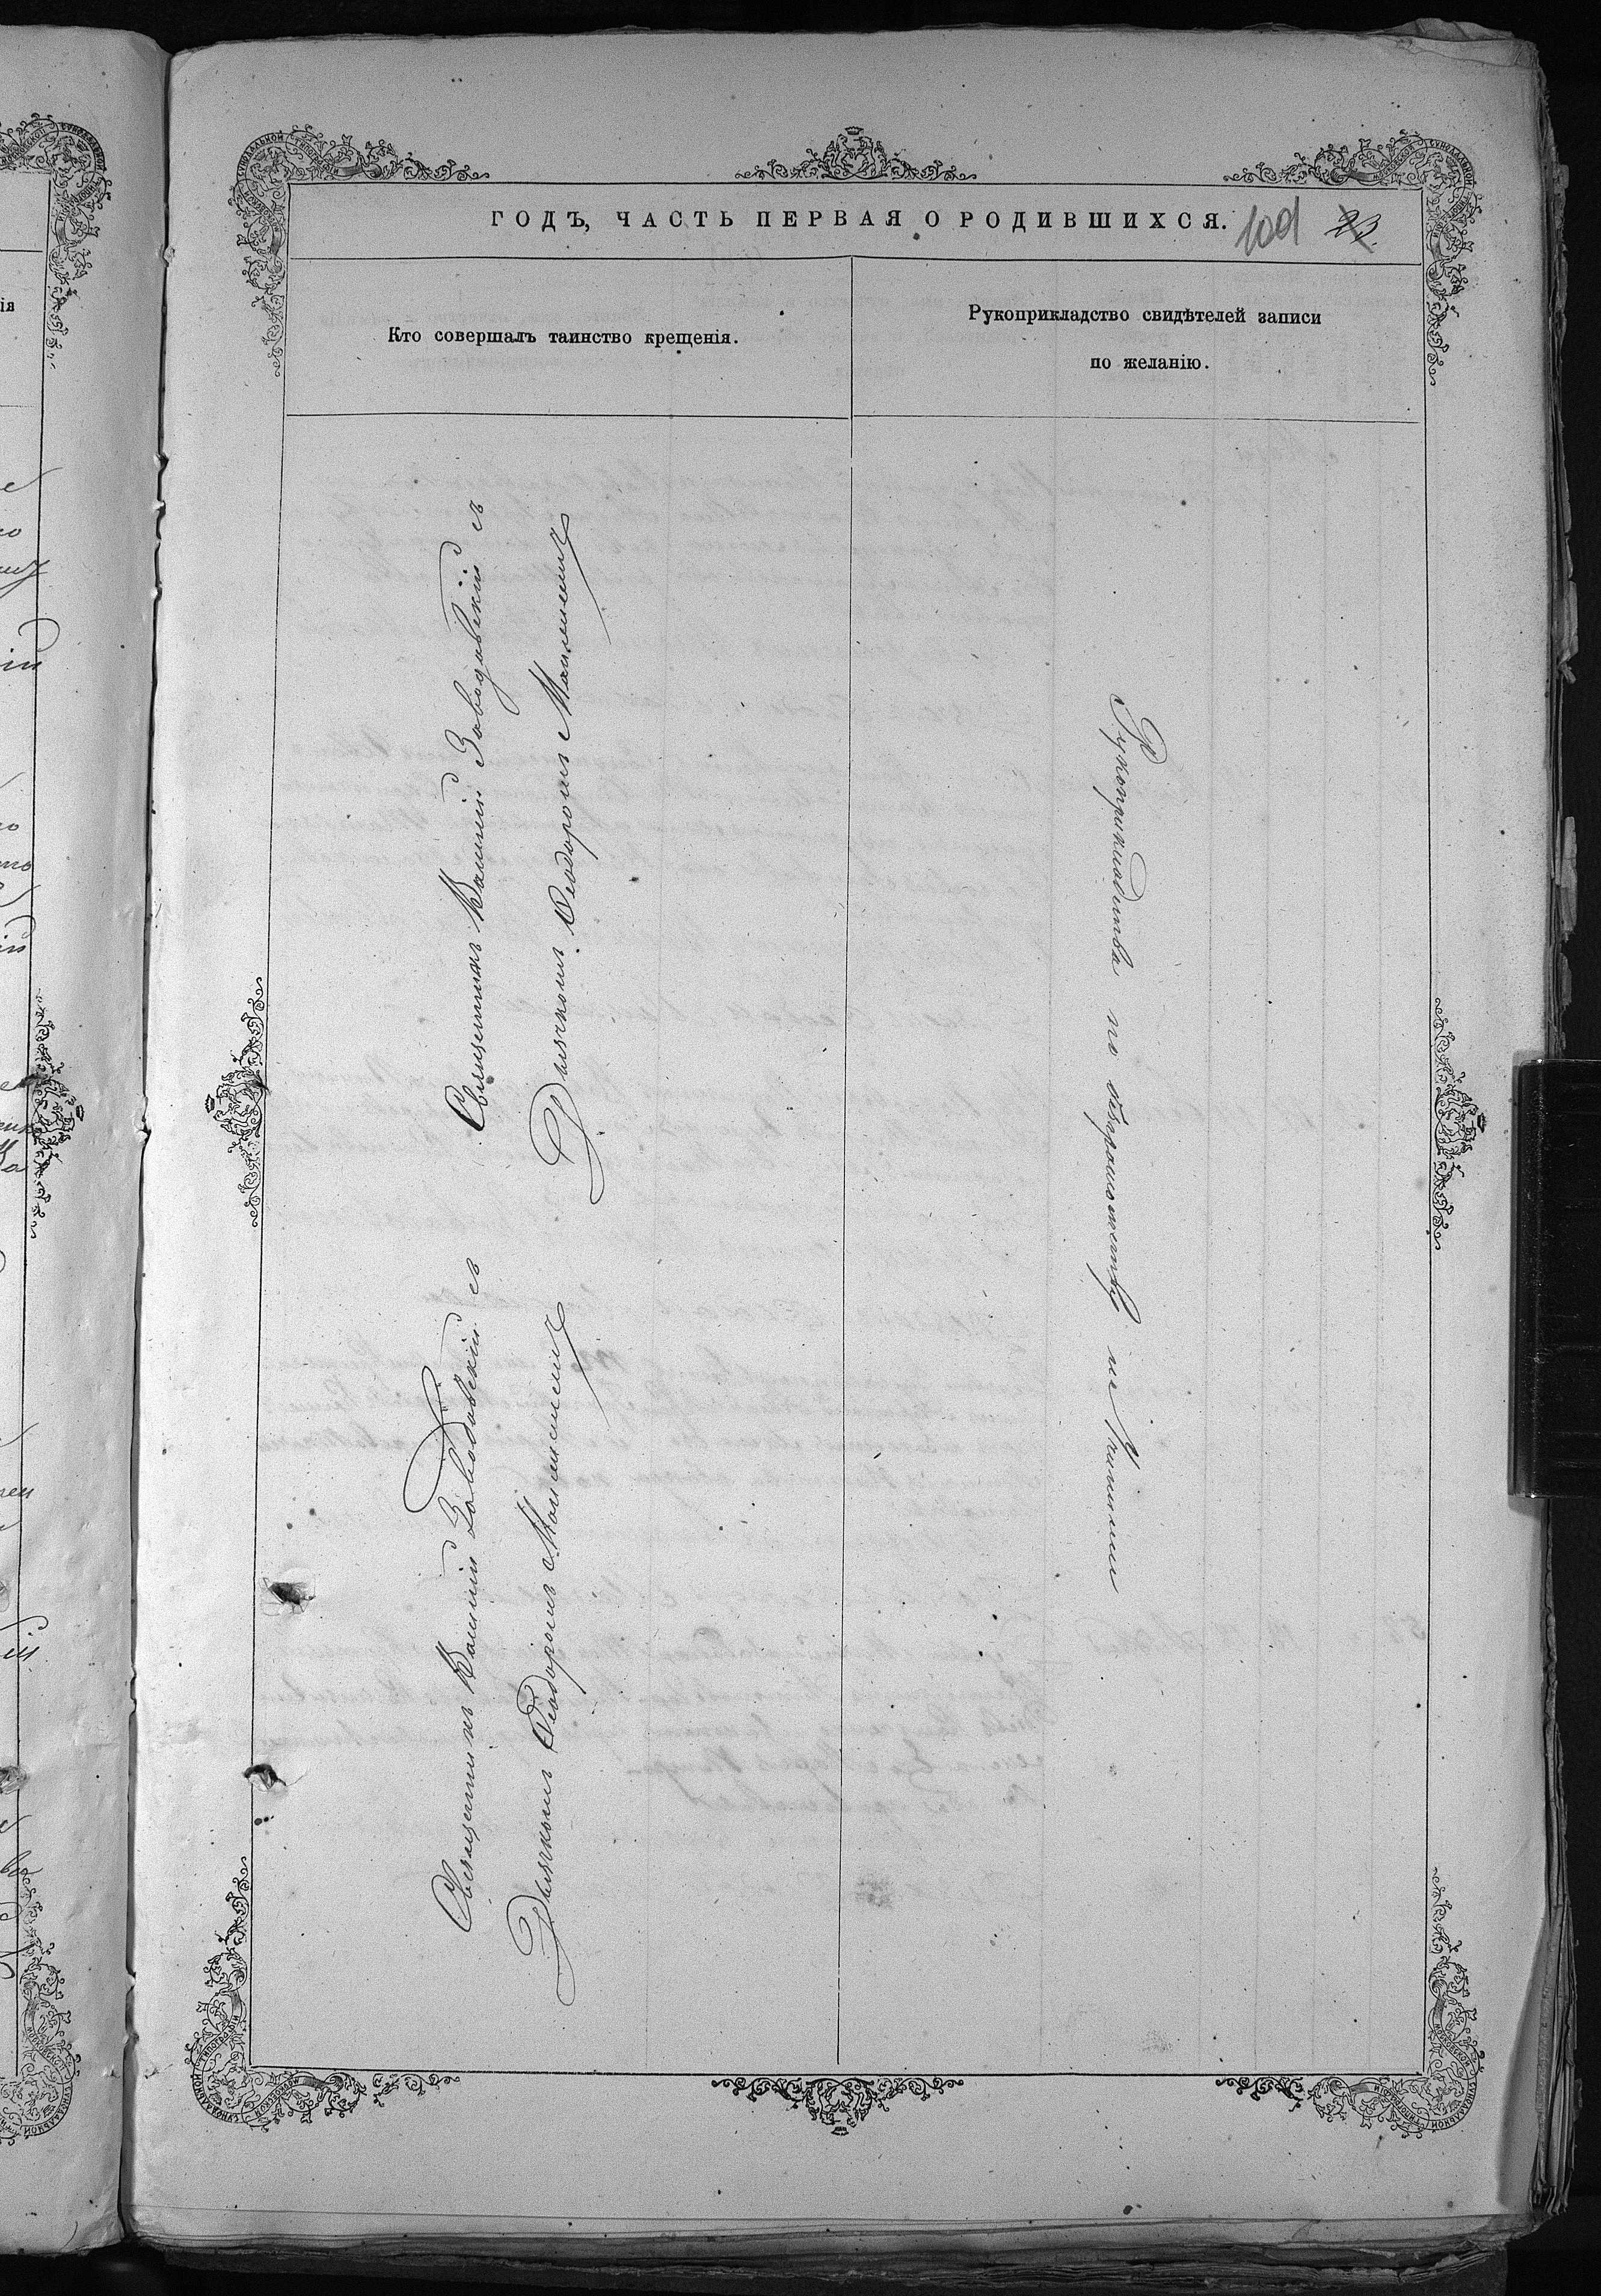 ГОДЪ, ЧАСТЬ ПЕРВАЯ О РОДИВШИХСЯ. 109 23.
Кто совершалъ таинство крещенія.
Рукоприкладство свидѣтелей записи
по желанію.
Священникъ Василій Заводовскій съ
Дьячкомъ Ѳеодоромъ
Священникъ Василій Заводовскій съ
Дьячкомъ Ѳеодоромъ
Рукоприкладства по неграмотству не учинили